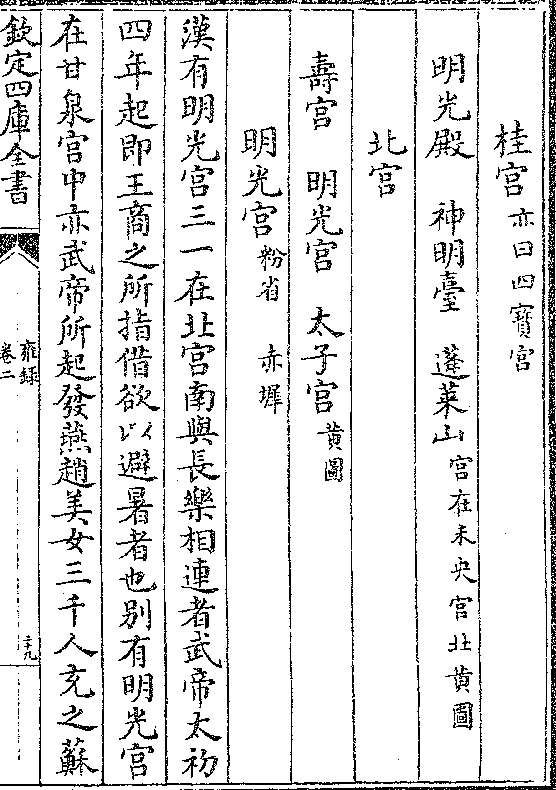 桂宮亦曰四寶宮
明光殿　神明臺　蓬萊山宮在未央宮北黄圖
北宮
壽宮　明光宮　太子宮黄圖
明光宮粉省　赤墀
漢有明光宮三一在北宮南與長樂相連者武帝太初
四年起即王商之所指借欲以避暑者也别有明光宮
在甘泉宮中亦武帝所起發燕趙美女三千人充之蘇
欽定四庫全書
雍録
卷二
二十九